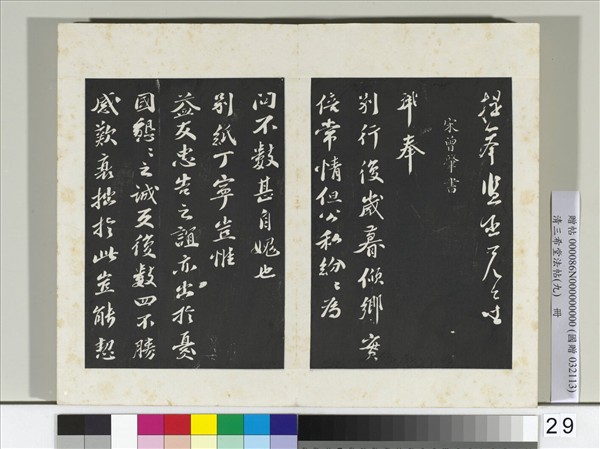 宋曾肇書
肇奉
別行後歲暮傾鄉實
倍常情但公私紛〻為
問不數甚自媿也
別紙丁寧豈惟
益友忠告之誼亦出於憂
國懇〻之誠反復數四不勝
感歎衰拙於此豈能恝
贈帖 000086N000000000 (國贈 032113)
清三希堂法帖(九) 冊
29